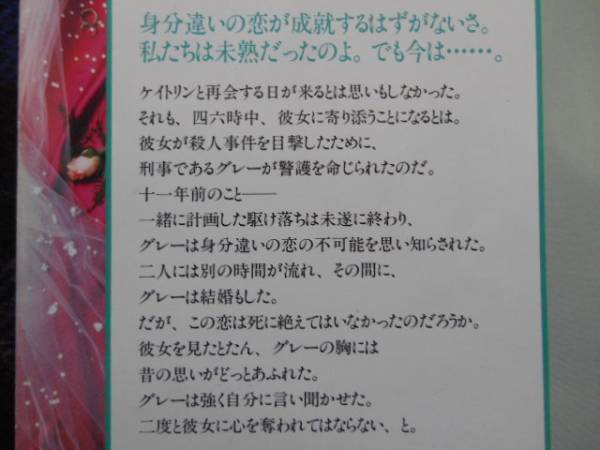 身分違いの恋が成就するはずがないさ。
私たちは未熟だったのよ。でも今は……。
ケイトリンと再会する日が来るとは思いもしなかった。
それも、四六時中、彼女に寄り添うことになるとは。
彼女が殺人事件を目撃したために、
刑事であるグレーが警護を命じられたのだ。
十一年前のこと――
一緒に計画した駆け落ちは未遂に終わり、
グレーは身分違いの恋の不可能を思い知らされた。
二人には別の時間が流れ、その間に、
グレーは結婚もした。
だが、この恋は死に絶えてはいなかったのだろうか。
彼女を見たとたん、グレーの胸には
昔の思いがどっとあふれた。
グレーは強く自分に言い聞かせた。
二度と彼女に心を奪われてはならない、と。